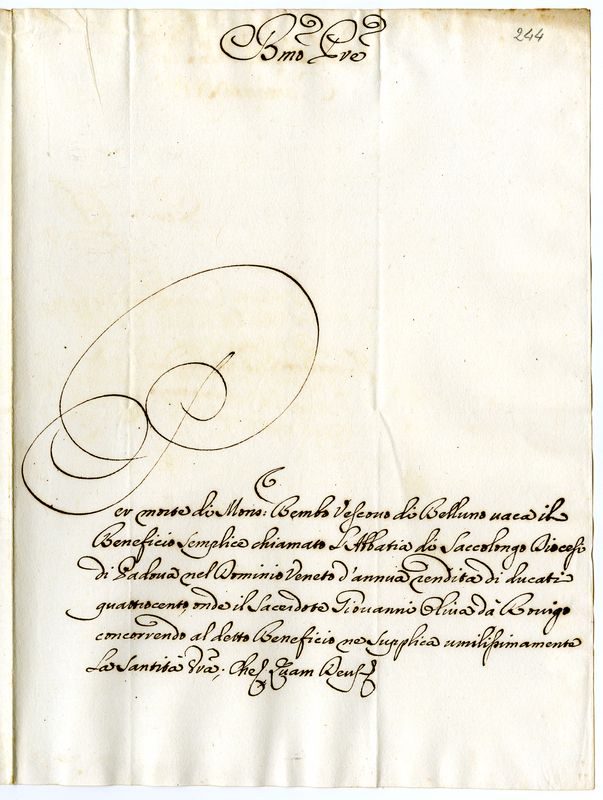 244
Bmo Pre
Per morte di Mons: Bembo Vescovo di Belluno uaca il
Beneficio semplice chiamato L'Abbatia di Saccolongo Diocesi
di Padova nel Dominio Veneto d'annua rendita di ducati
quattrocento, onde il Sacerdote Giovanni Oliva dà Rovigo
concorrendo al detto Beneficio ne supplica umilissimamente
La Santità Vra; Che Quam Deus